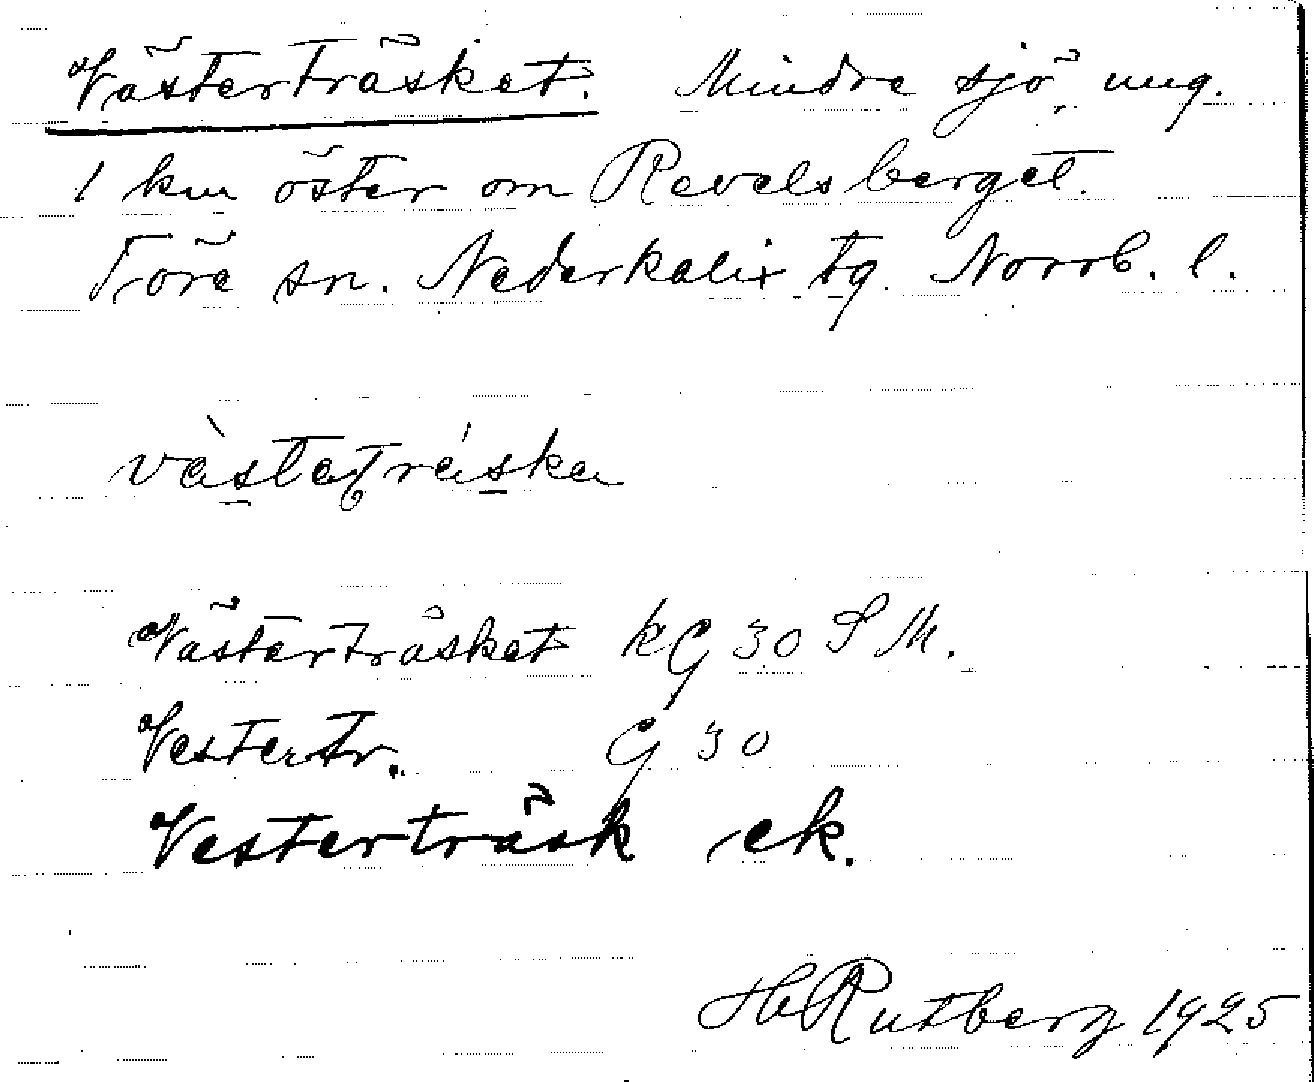 Västerträsket. Mindre sjö, ung.
1 km öster om Revelsberget.
Töre sn. Nederkalix tg. Norrb. l.
Västerträsket kG 30 S M.
Vestertr. G 30
Vesterträsk ek.
H Rutberg 1925